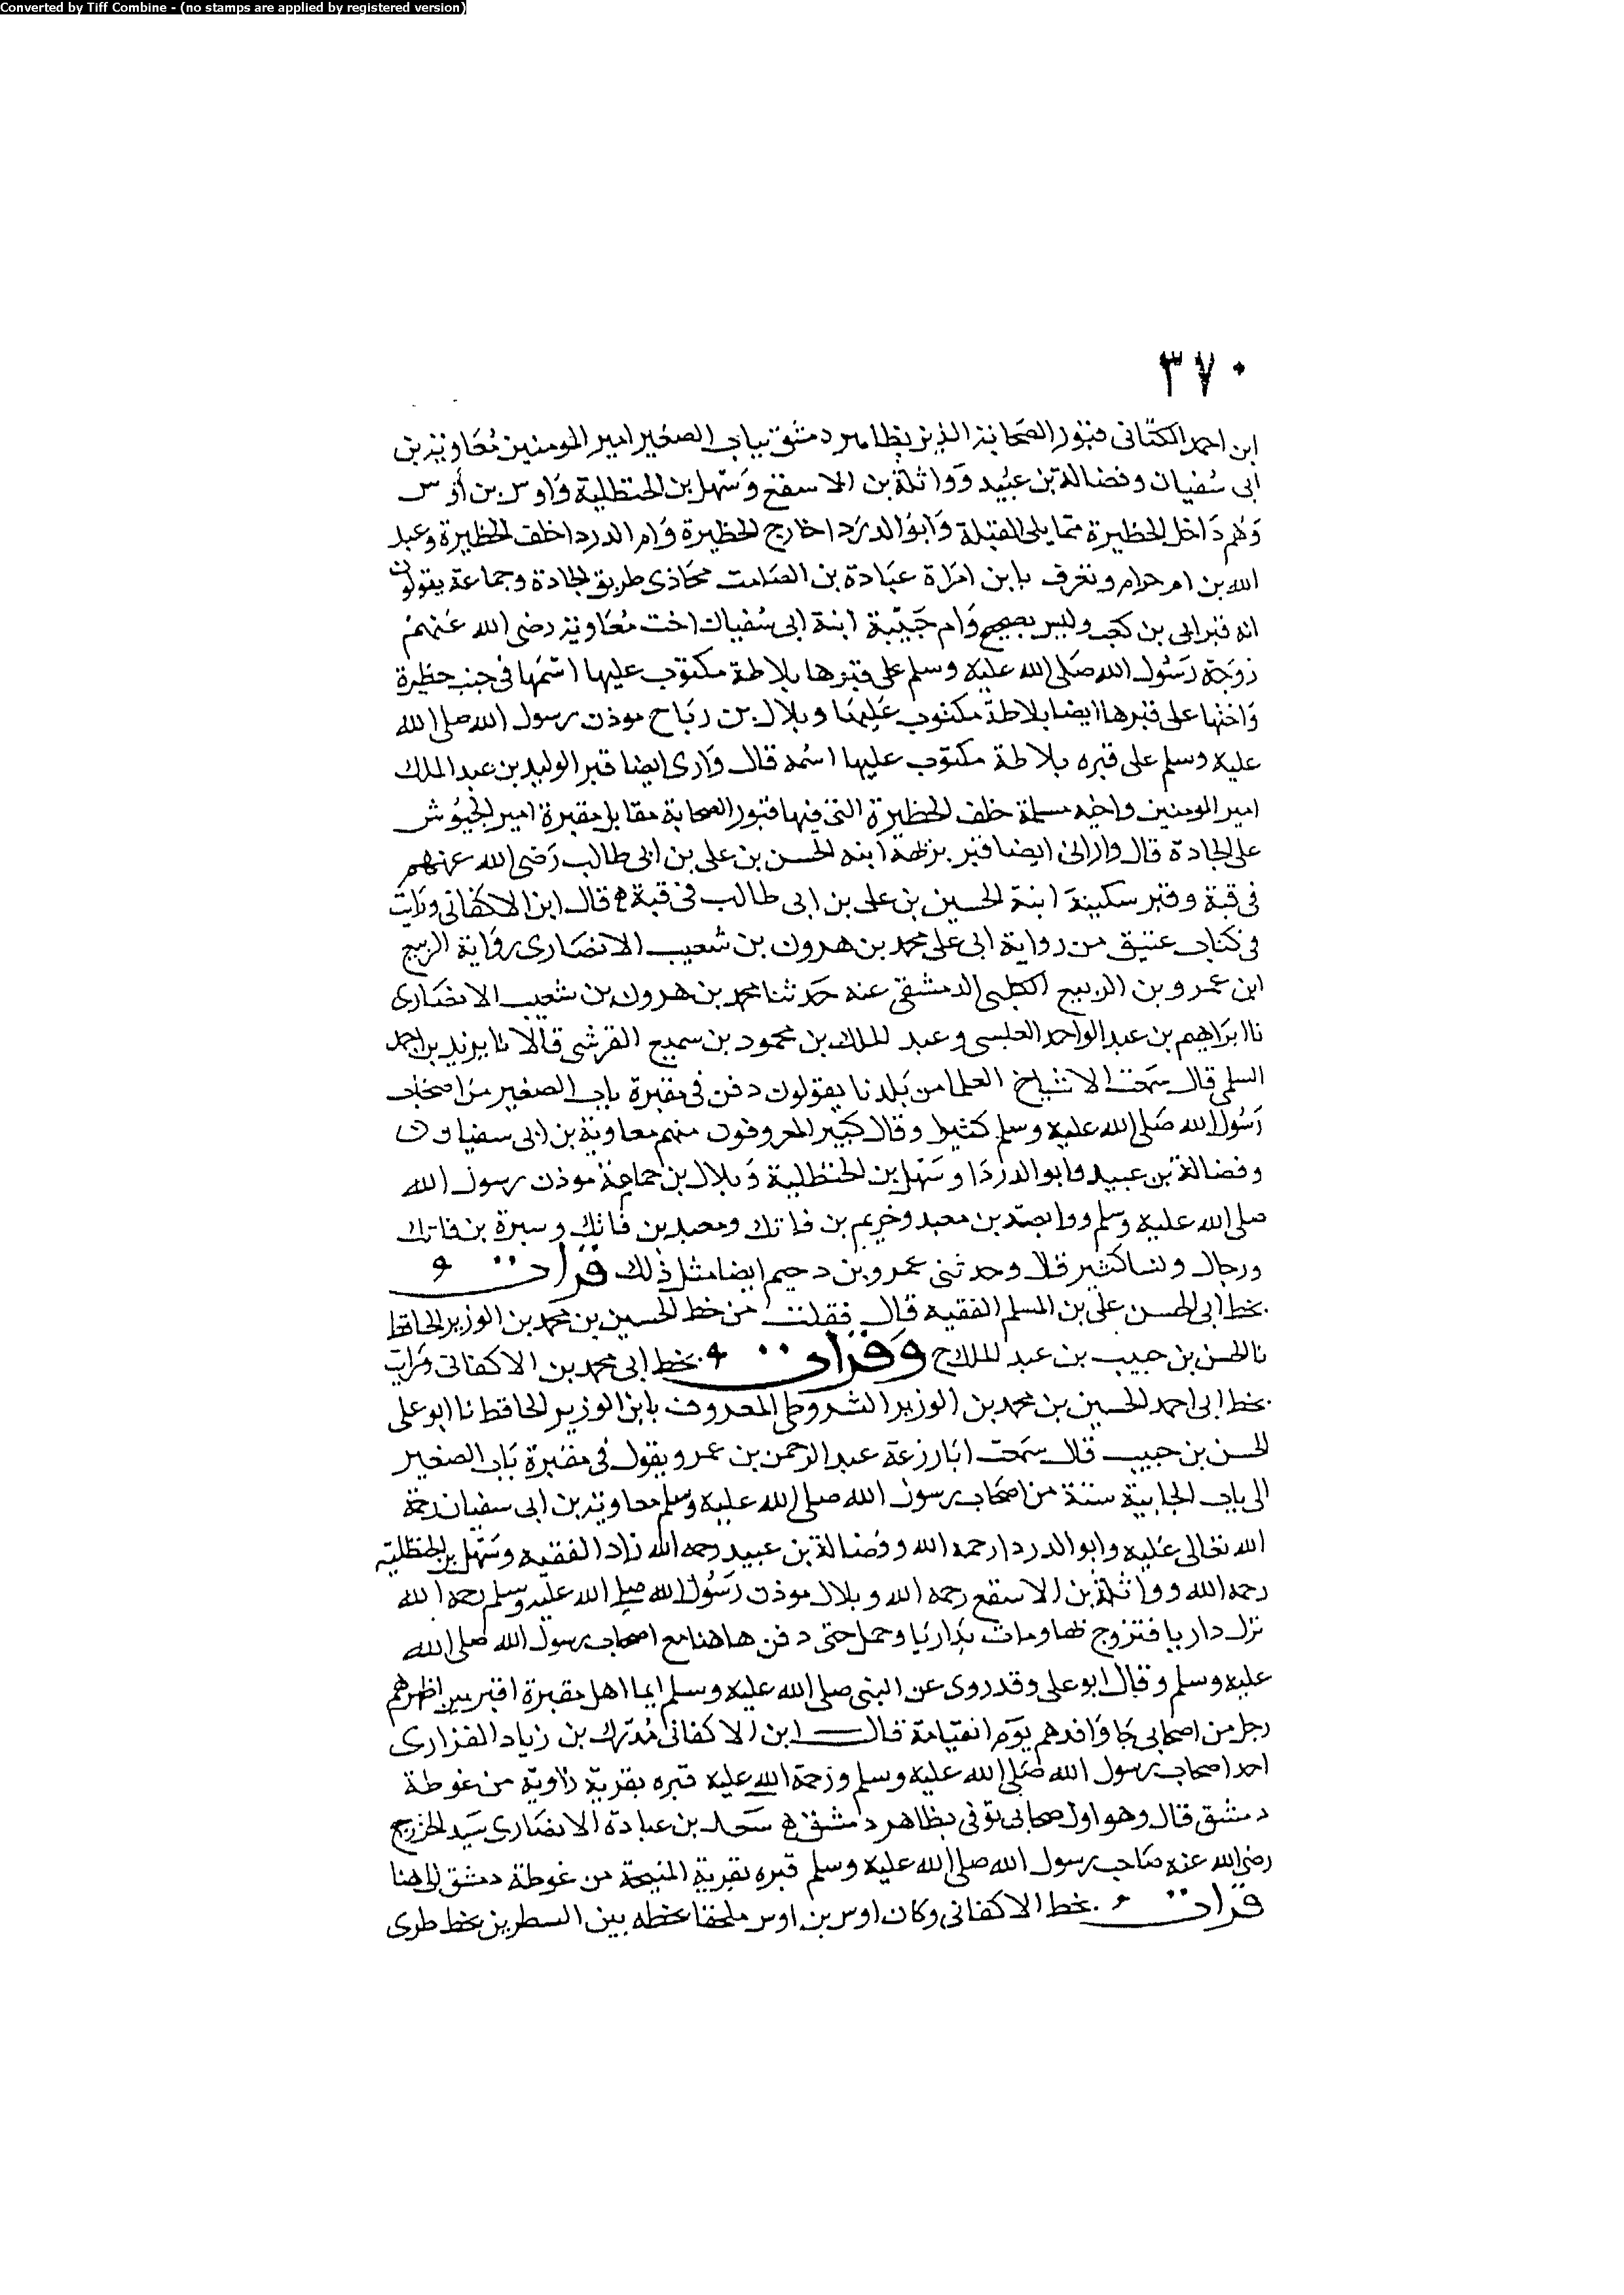 Converted by Tiff Combine - (no stamps are applied by registered version)
٣٧٠
ابن احمد الكتانى قبور الصحابة الذين بظاهر دمشق بباب الصغير امير المومنين معاوية بن
ابى سفيان وفضالة بن عبيد وواثلة بن الاسقع وسهل بن الحنظلية واوس بن أوس
وهم داخل الحظيرة مما يلى القبلة وابو الدردا خارج الحظيرة وام الدردا خلف الحظيرة وعبد
الله بن ام حرام ونعرف بابن امراة عبادة بن الصامت محاذى طريق الجادة وجماعة يقولون
انه قبر ابى بن كعب وليس بصحيح وام حبيبة ابنة ابى سفيان اخت معاوية رضى الله عنهم
زوجة رسول الله صلى الله عليه وسلم على قبرها بلاطة مكتوب عليها اسمها فى جنب حظيرة
واختها على قبرها ايضا بلاطة مكتوب عليها وبلال بن رباح موذن رسول الله صلى الله
عليه وسلم على قبره بلاطة مكتوب عليها اسمه قال وارى ايضا قبر الوليد بن عبد الملك
امير المومنين واخيه مسلمة خلف الحظيرة التى فيها قبور الصحابة مقابل مقبرة امير الجيوش
على الجادة قال وارانى ايضا قبر بزهة ابنه الحسن بن على بن ابى طالب رضى الله عنهم
فى قبة وقبر سكينة ابنة الحسين بن على بن ابى طالب فى قبة قال ابن الاكفانى ورايت
فى كتاب عتيق من رواية ابى على محمد بن هرون بن شعيب الانصارى رواية الربيع
ابن عمرو بن الربيع الكلبى الدمشقى عنه حدثنا محمد بن هرون بن شعيب الانصارى
نا ابراهيم بن عبد الواحد العبسى وعبد الملك بن محمود بن سميع القرشى قالا نا يزيد بن احمد
السلمى قال سمعت الاشياخ العلما من بلدنا يقولون دفن فى مقبرة باب الصغير من اصحاب
رسول الله صلى الله عليه وسلم كثير وقال كبير المعروفون منهم معاوية بن ابى سفيان
وفضالة بن عبيد وابو الدردا وسهل بن الحنظلية وبلال بن حمامة موذن رسول الله
صلى الله عليه وسلم ووابصة بن معبد وخريم بن فاتك ومعبد بن فاتك وسبرة بن فاتك
ورجال ونسا كثير قالا وحدثنى عمرو بن دحيم ايضا مثل ذلك قرات
بخط ابى الحسن على بن المسلم الفقيه قال فقلت من خط الحسين بن محمد بن الوزير الحافظ
نا الحسن بن حبيب بن عبد الملك ح وقرات بخط ابى محمد بن الاكفانى وقرات
بخط ابى احمد الحسين بن محمد بن الوزير الشروطى المعروف بابن الوزير الحافظ نا ابو على
الحسن بن حبيب قال سمعت ابا زرعة عبد الرحمن بن عمرو يقول فى مقبرة باب الصغير
الى باب الجابية ستة من اصحاب رسول الله صلى الله عليه وسلم معاوية بن ابى سفيان رحمة
الله تعالى عليه وابو الدردا رحمه الله وفضالة بن عبيد رحمه الله زاد الفقيه وسهل بن الحنظلية
رحمه الله وواثلة بن الاسقع رحمه الله وبلال موذن رسول الله صلى الله عليه وسلم رحمه الله
نزل داريا فتزوج بها ومات بداريا وحمل حتى دفن هاهنا مع اصحاب رسول الله صلى الله
عليه وسلم وقال ابو على وقد روى عن النبى صلى الله عليه وسلم ايما اهل مقبرة اقبر بين اظهرهم
رجل من اصحابى جا وافدهم يوم القيامة قال ابن الاكفانى مدرك بن زياد الفزارى
احد اصحاب رسول الله صلى الله عليه وسلم ورحمة الله عليه قبره بقرية زاوية من غوطة
دمشق قال وهو اول صحابى توفى بظاهر دمشق سعد بن عبادة الانصارى سيد الخزرج
رضى الله عنه صاحب رسول الله صلى الله عليه وسلم قبره بقرية المنيحة من غوطة دمشق الى هنا
قرات بخط الاكفانى وكان اوس بن اوس ملحقا بخطه بين السطرين بخط طرى